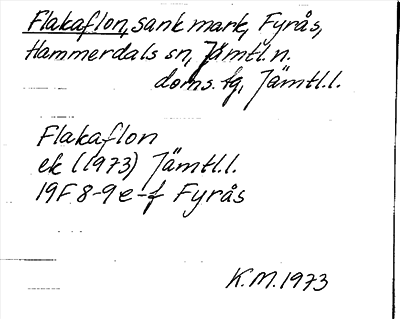 Flakaflon, sank mark, Fyrås,
Hammerdals sn, Jämtl.n.
doms.fg, Jämtl.l.
Flakaflon
ek (1973) Jämtl.l.
19F 8-9 e-f Fyrås
K.M. 1973